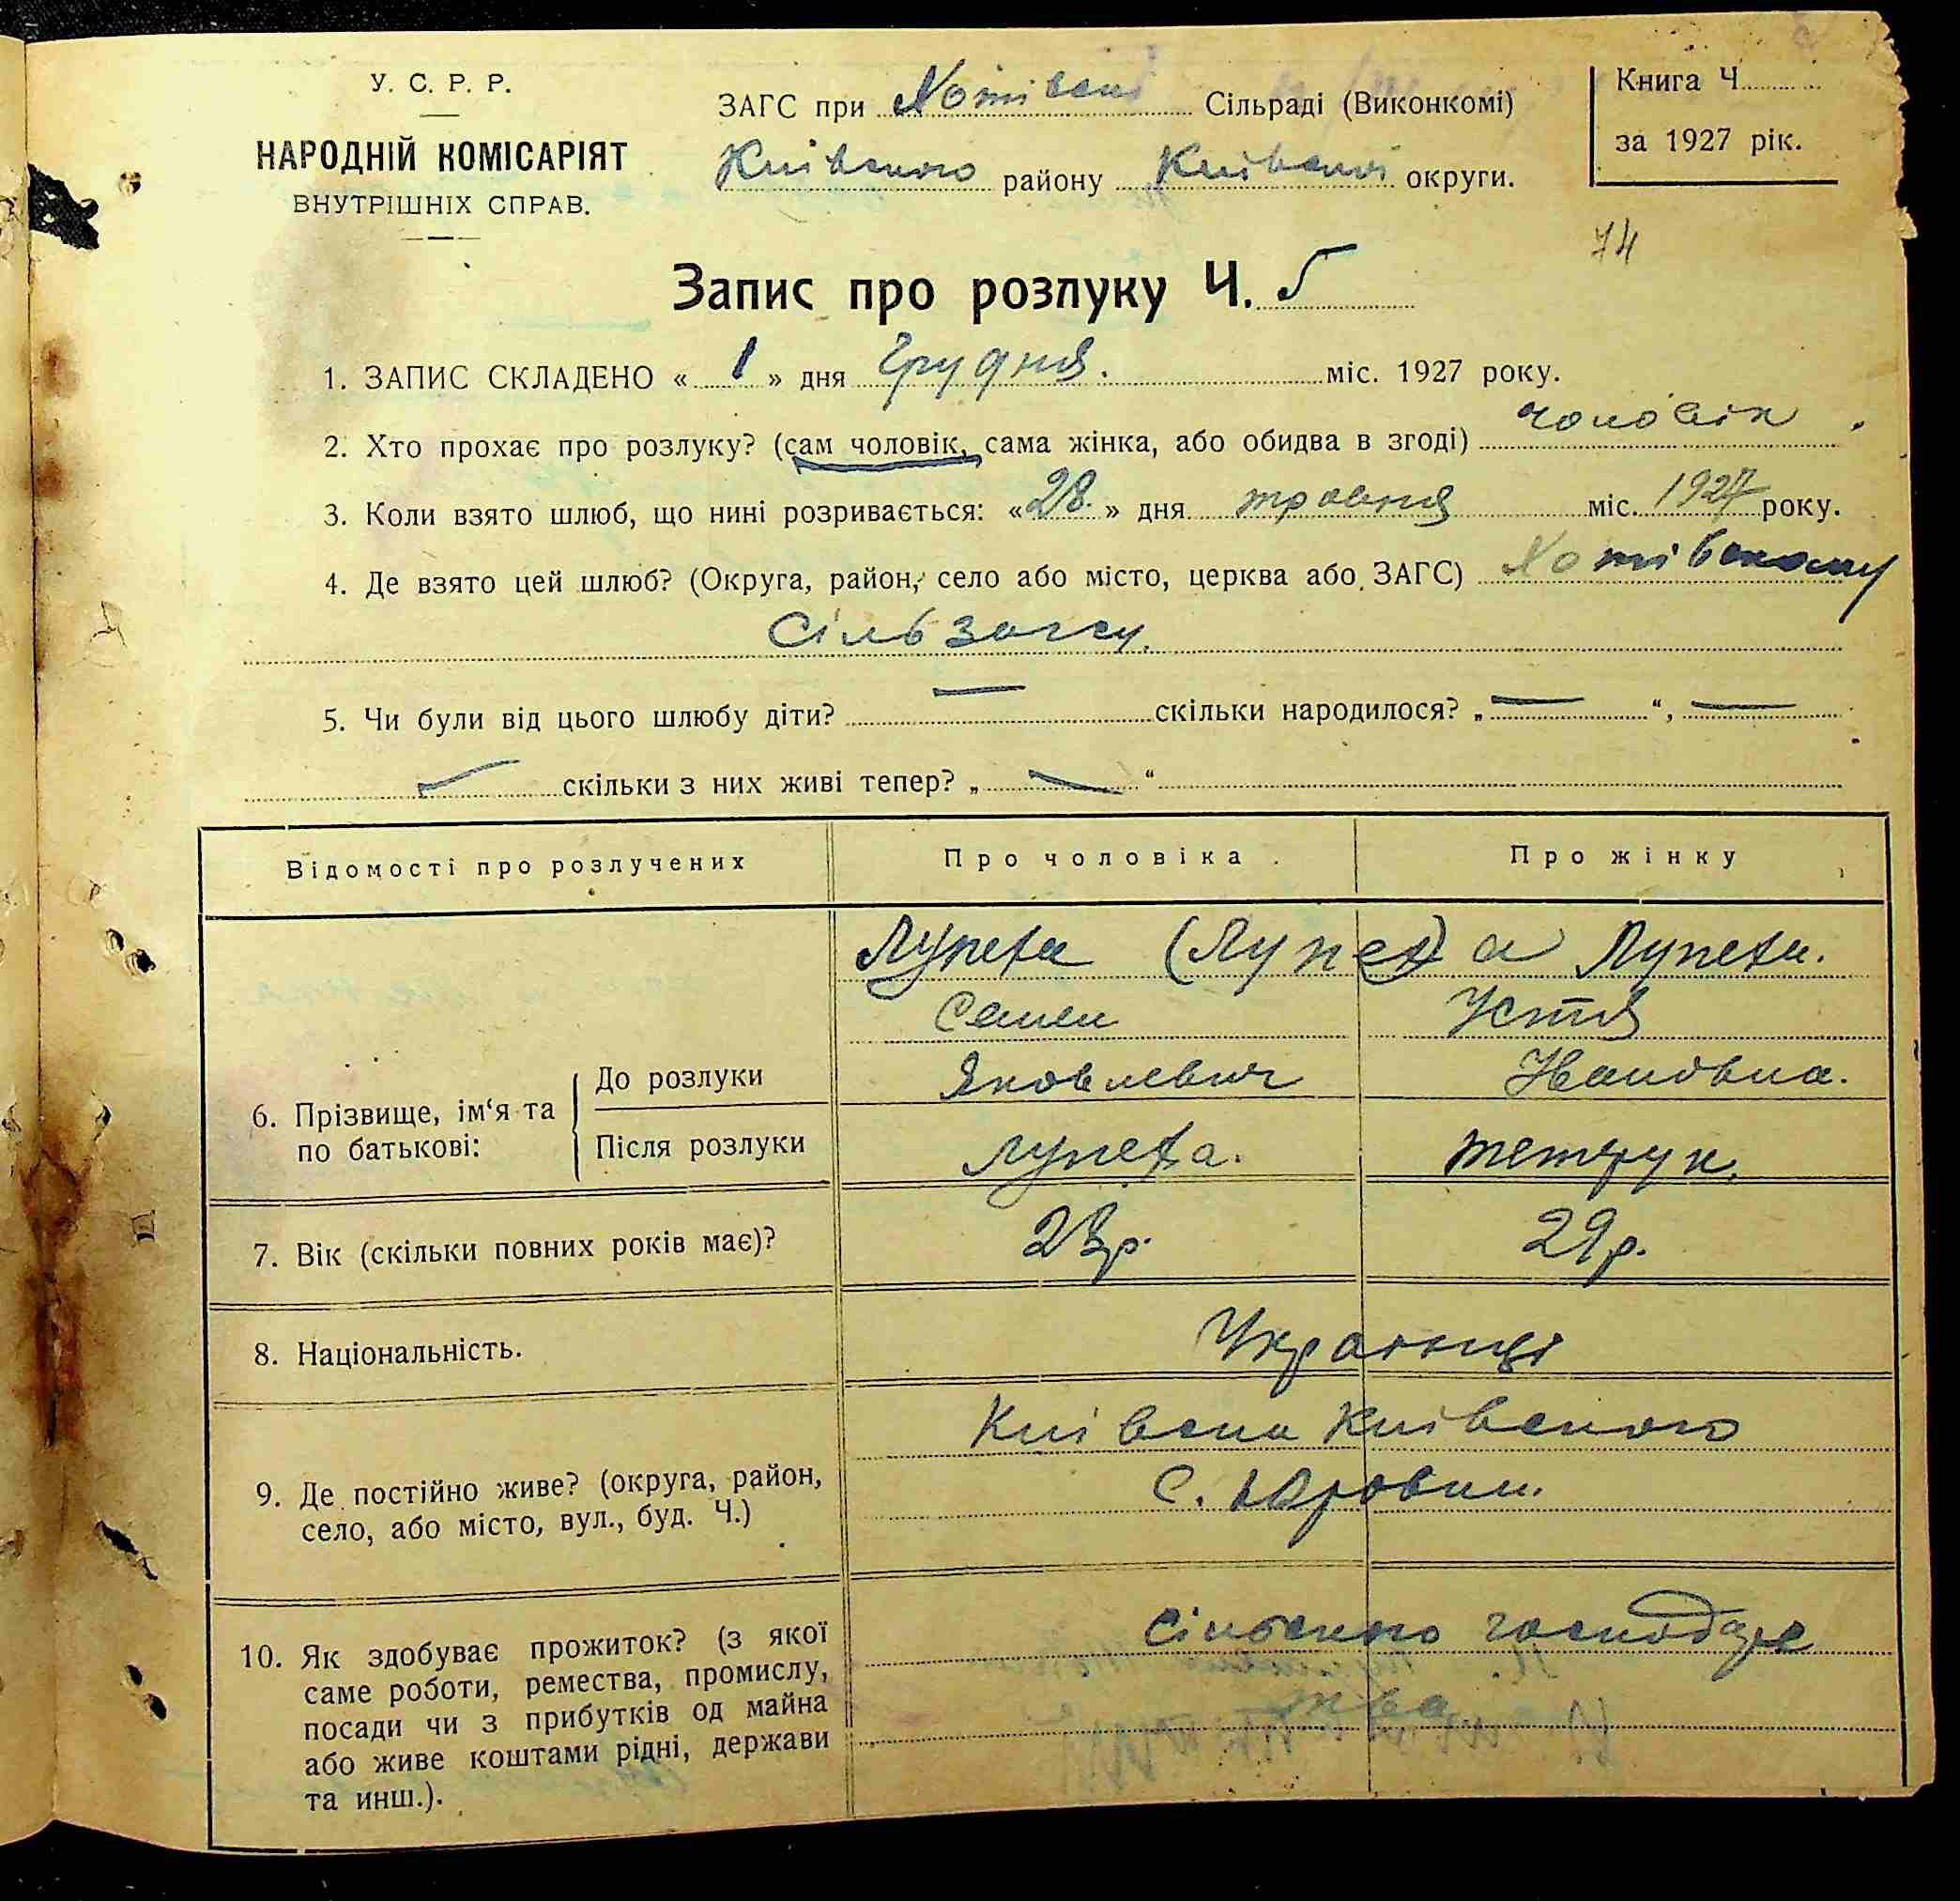 У. С. Р. Р.
НАРОДНІЙ КОМІСАРІЯТ
ВНУТРІШНІХ СПРАВ.
ЗАГС при Хотівські Сільраді (Виконкомі)
Київського району Київської округи.
Книга Ч.
за 1927 рік.
74
Запис про розлуку Ч. 5
1. ЗАПИС СКЛАДЕНО « 1 » дня Грудня. міс. 1927 року.
2. Хто прохає про розлуку? (сам чоловік, сама жінка, або обидва в згоді) чоловік.
3. Коли взято шлюб, що нині розривається: «28» дня травня міс. 1927 року.
4. Де взято цей шлюб? (Округа, район, село або місто, церква або ЗАГС) Хотівському
Сільзагсу.
5. Чи були від цього шлюбу діти? — скільки народилося? „—“, —
скільки з них живі тепер? „—“
Відомості про розлучених
Про чоловіка
Про жінку
Лупеха (Лупех) а Лупеха.
Семен Устя
Яковлевич Ивановна.
6. Прізвище, ім‘я та по батькові:
До розлуки
Після розлуки
Лупеха.
7. Вік (скільки повних років має)?
29р.
8. Національність.
Українці
9. Де постійно живе? (округа, район,
село, або місто, вул., буд. Ч.)
Київська Київського
с. Юровки.
10. Як здобуває прожиток? (з якої
саме роботи, ремества, промислу,
посади чи з прибутків од майна
або живе коштами рідні, держави
та инш.).
Сільського господарс
тва